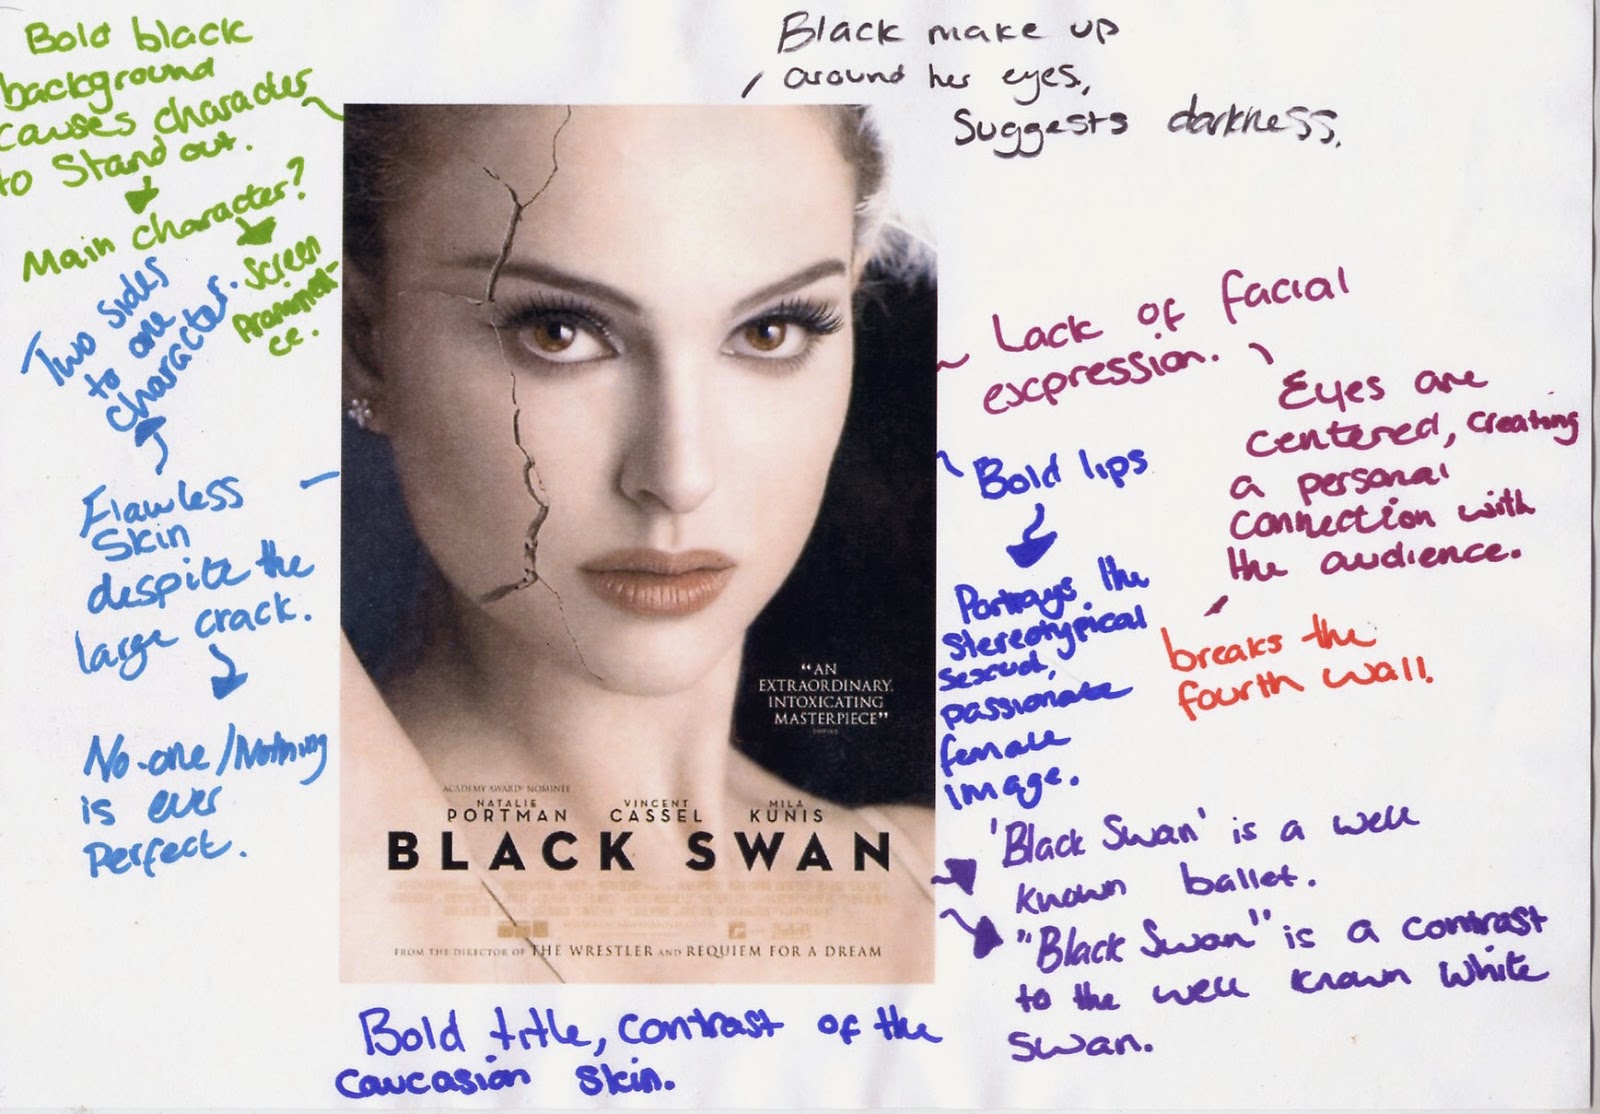 Bold black
background
causes character
to Stand out.
Main character?
Screen
Prominen-
ce.
Two sides
to one
character.
Flawless
Skin
despite the
large crack.
No-one/Nothing
is ever
Perfect.
Black make up
around her eyes,
Suggests darkness.
Lack of facial
expression.
Eyes are
centered, creating
a personal
connection with
the audience.
breaks the
fourth wall.
Bold lips
Portrays the
stereotypical
sexual,
passionate
female
image.
'Black Swan' is a well
known ballet.
"Black Swan" is a contrast
to the well known white
swan.
Bold title, contrast of the
caucasion skin.
"AN
EXTRAORDINARY,
INTOXICATING
MASTERPIECE"
EMPIRE
ACADEMY AWARD® NOMINEE
NATALIE PORTMAN
VINCENT CASSEL
MILA KUNIS
BLACK SWAN
FROM THE DIRECTOR OF THE WRESTLER AND REQUIEM FOR A DREAM